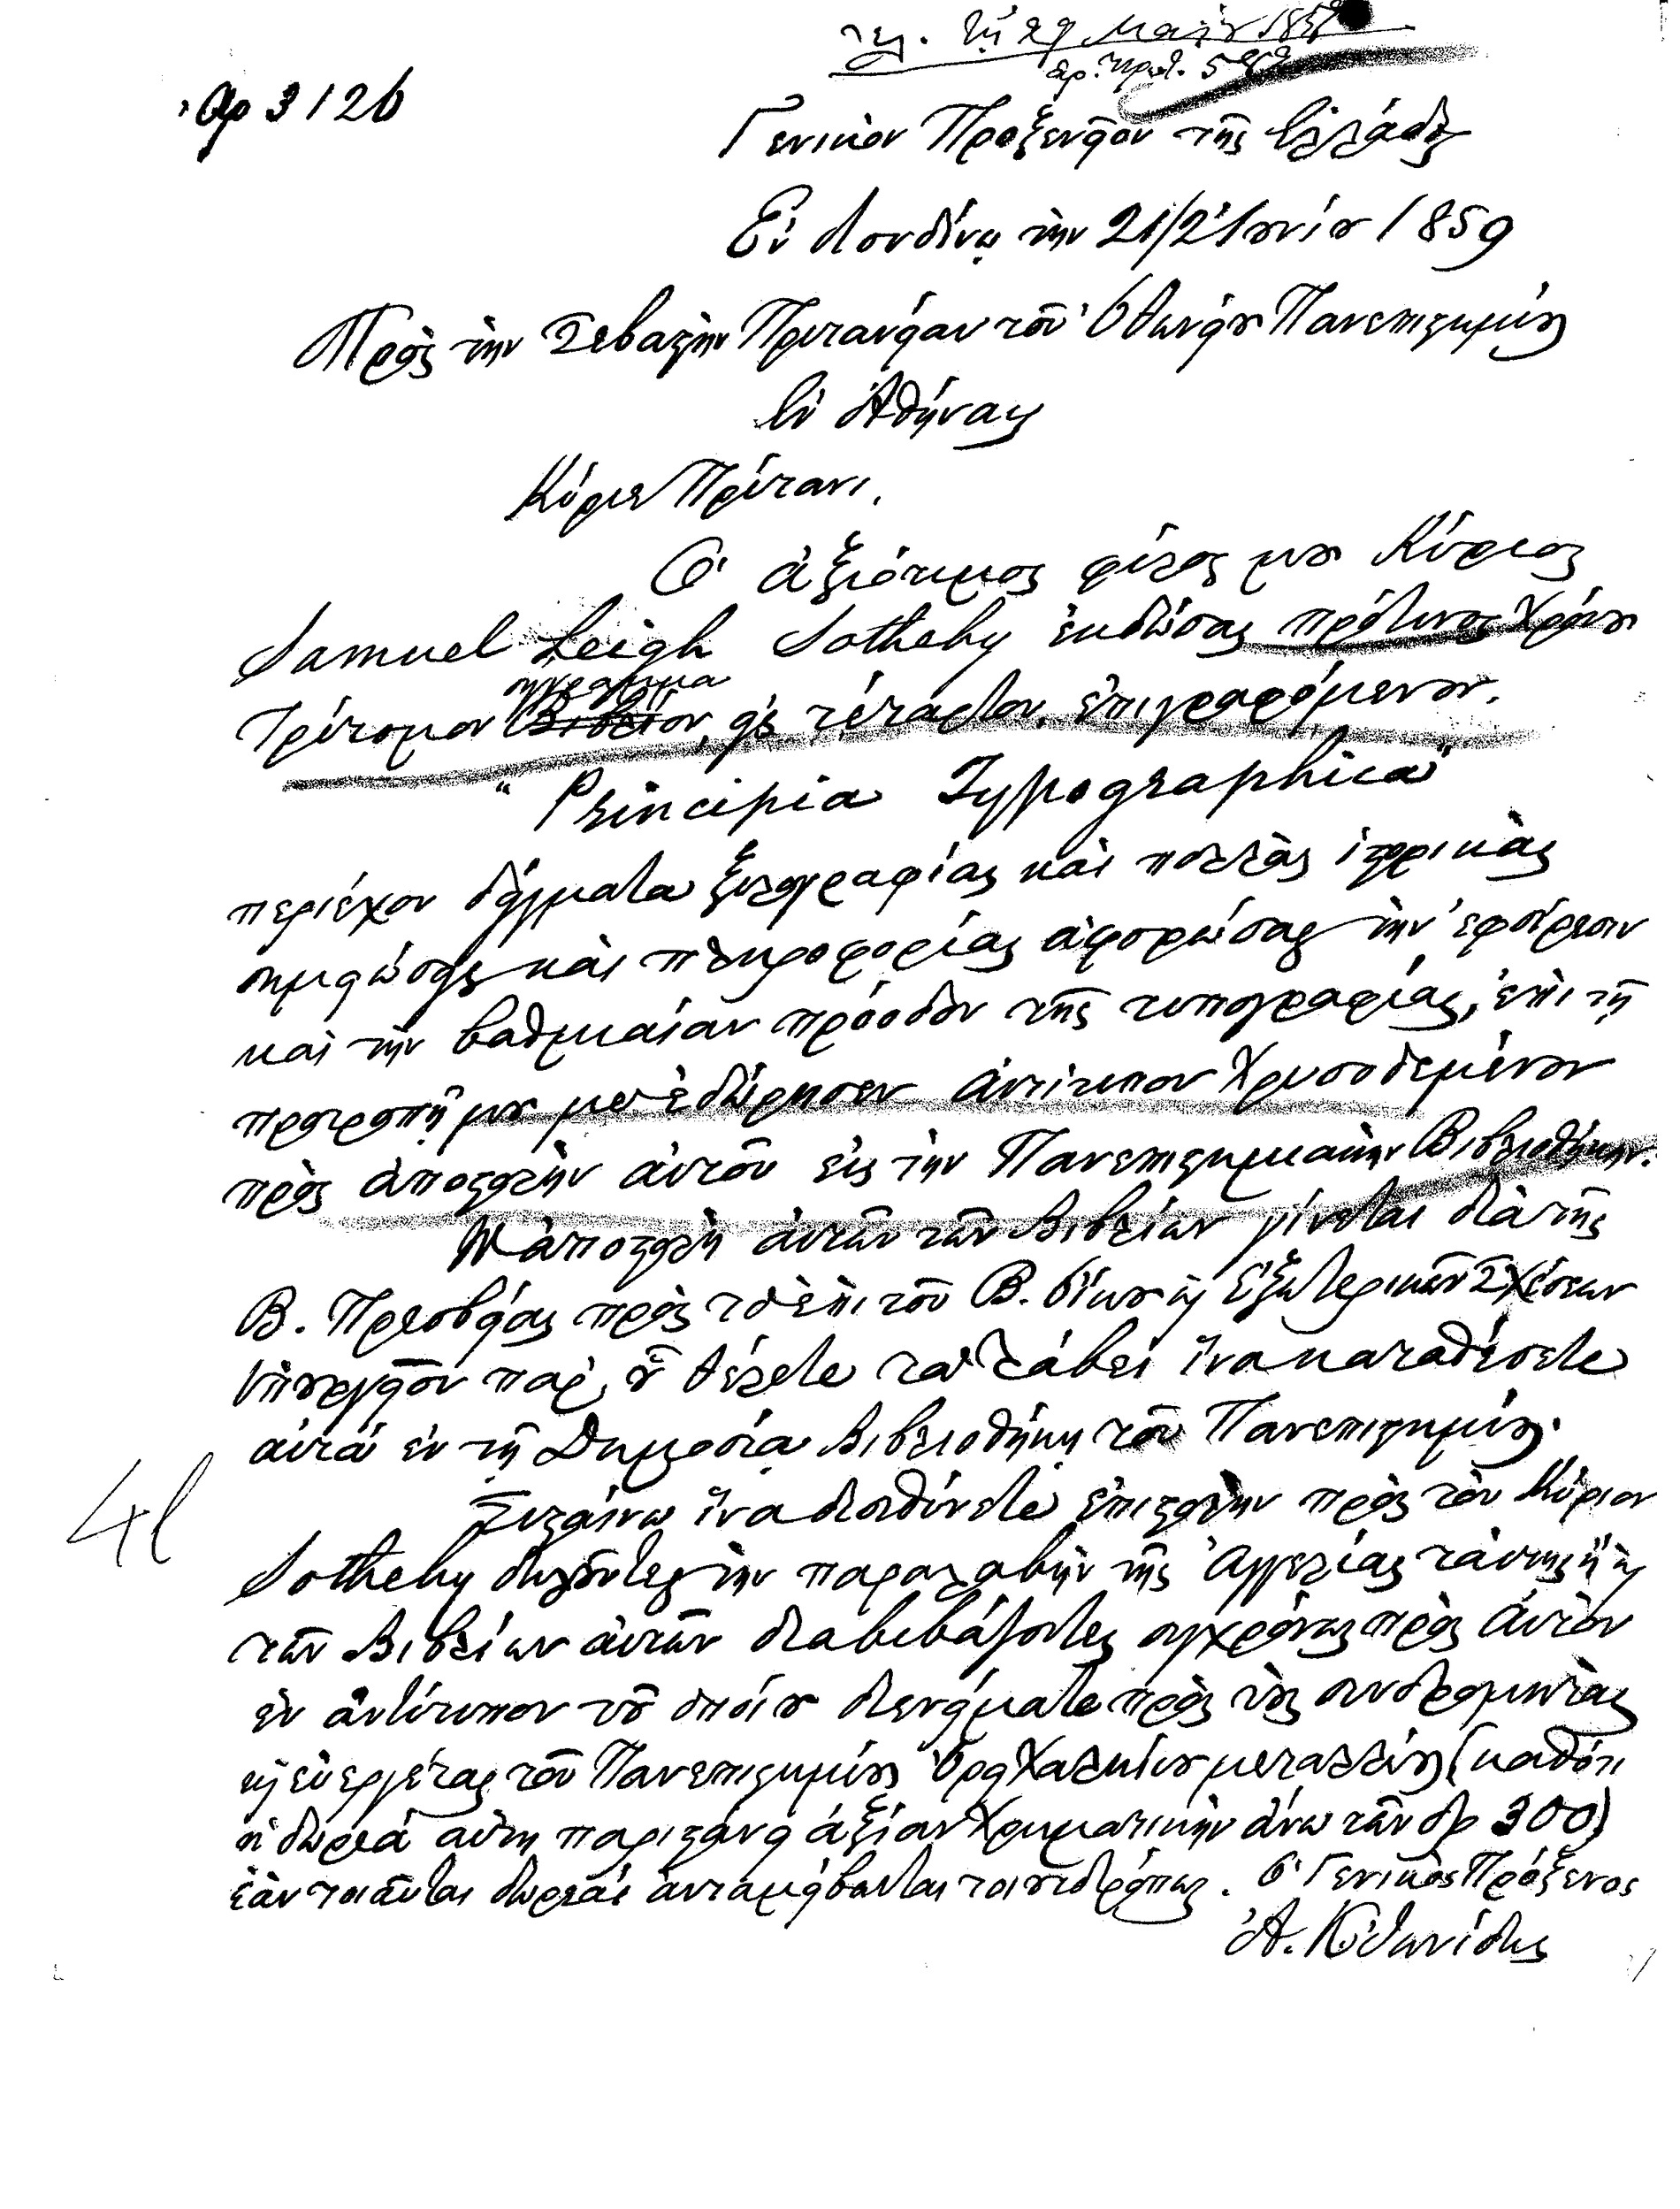 τῇ 29 Μαΐου 185
ἀρ. πρωτ. 5
Ἀρ 3126
Γενικὸν Προξενεῖον τῆς Ἑλλάδος
Ἐν Λονδίνῳ τὴν 21/2 Ἰουνίου 1859
Πρὸς τὴν Σεβαστὴν Πρυτανείαν τοῦ Ὀθωνείου Πανεπιστημίου
ἐν Ἀθήναις
Κύριε Πρύτανι,
Ὁ ἀξιότιμος φίλος μου Κύριος
Samuel Leigh Sotheby ἐκδώσας πρό τινος χρόνου
σύγγραμμα
Τρίτομον Βιβλίον, εἰς τέταρτον, ἐπιγραφόμενον.
"Principia Typographica"
περιέχον δείγματα ξυλογραφίας καὶ πολλὰς ἱστορικὰς
σημειώσεις καὶ πληροφορίας ἀφορώσας τὴν ἐφεύρεσιν
καὶ τὴν βαθμιαίαν πρόοδον τῆς τυπογραφίας, ἐπὶ τῇ
προτροπῇ μου μοὶ ἐδώρησεν ἀντίτυπον χρυσοδεμένον
πρὸς ἀποστολὴν αὐτοῦ εἰς τὴν Πανεπιστημιακὴν Βιβλιοθήκην.
Ἡ ἀποστολὴ αὐτῶν τῶν Βιβλίων γίνεται διὰ τῆς
Β. Πρεσβείας πρὸς τὸ ἐπὶ τοῦ Β. Οἴκου καὶ Ἐξωτερικῶν Σχέσεων
Ὑπουργεῖον παρ' οὗ θέλετε τὰ λάβει ἵνα καταθέσετε
αὐτὰ ἐν τῇ Δημοσίᾳ Βιβλιοθήκῃ τοῦ Πανεπιστημίου.
Συσταίνω ἵνα διευθύνετε ἐπιστολὴν πρὸς τὸν Κύριον
Sotheby δηλοῦντες τὴν παραλαβὴν τῆς Ἀγγελίας ταύτης ἢ καὶ
τῶν Βιβλίων αὐτῶν διαβιβάζοντες συγχρόνως πρὸς αὐτὸν
ἓν ἀντίτυπον τοῦ ὁποίου διενείματε πρὸς τοὺς συνδρομητὰς
καὶ εὐεργέτας τοῦ Πανεπιστημίου Ὀρειχαλκίου μεταλλίου (καθότι
ἡ δωρεὰ αὕτη παριστάνει ἀξίαν χρηματικὴν ἄνω τῶν δρ 300)
ἐὰν τοιαῦται δωρεαὶ ἀνταμείβωνται τοιουτοτρόπως. Ὁ Γενικὸς Πρόξενος
Ἀ. Ἰωνίδης
4l